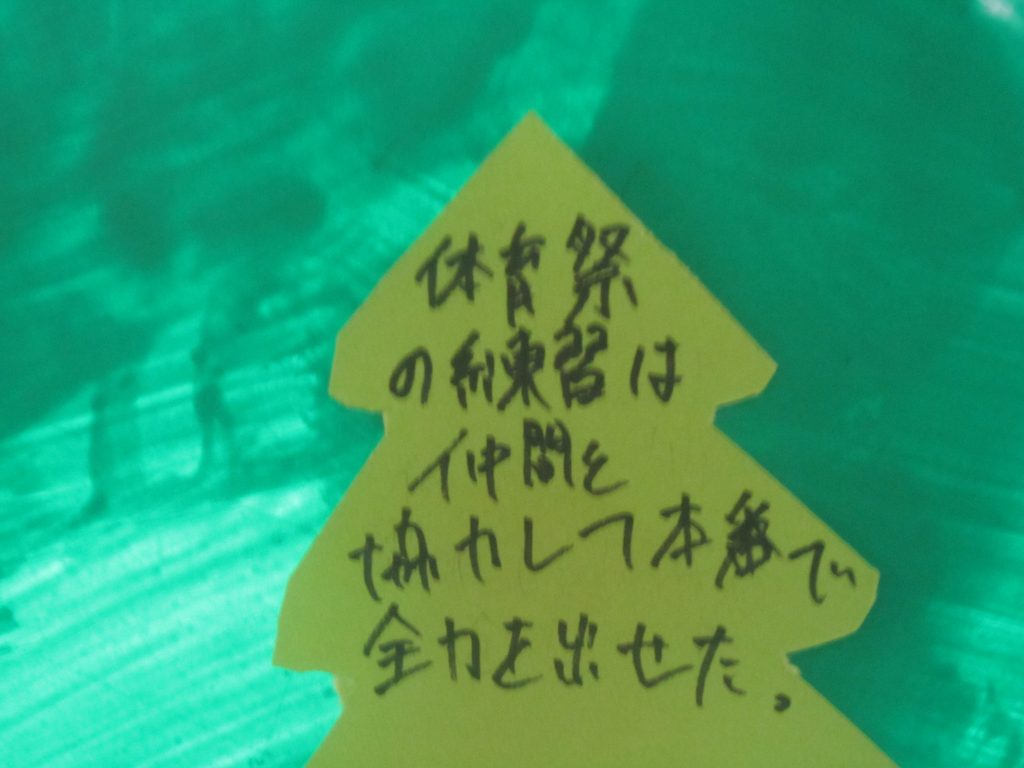 体育祭
の練習は
仲間を
協力して本番で
全力を出せた。